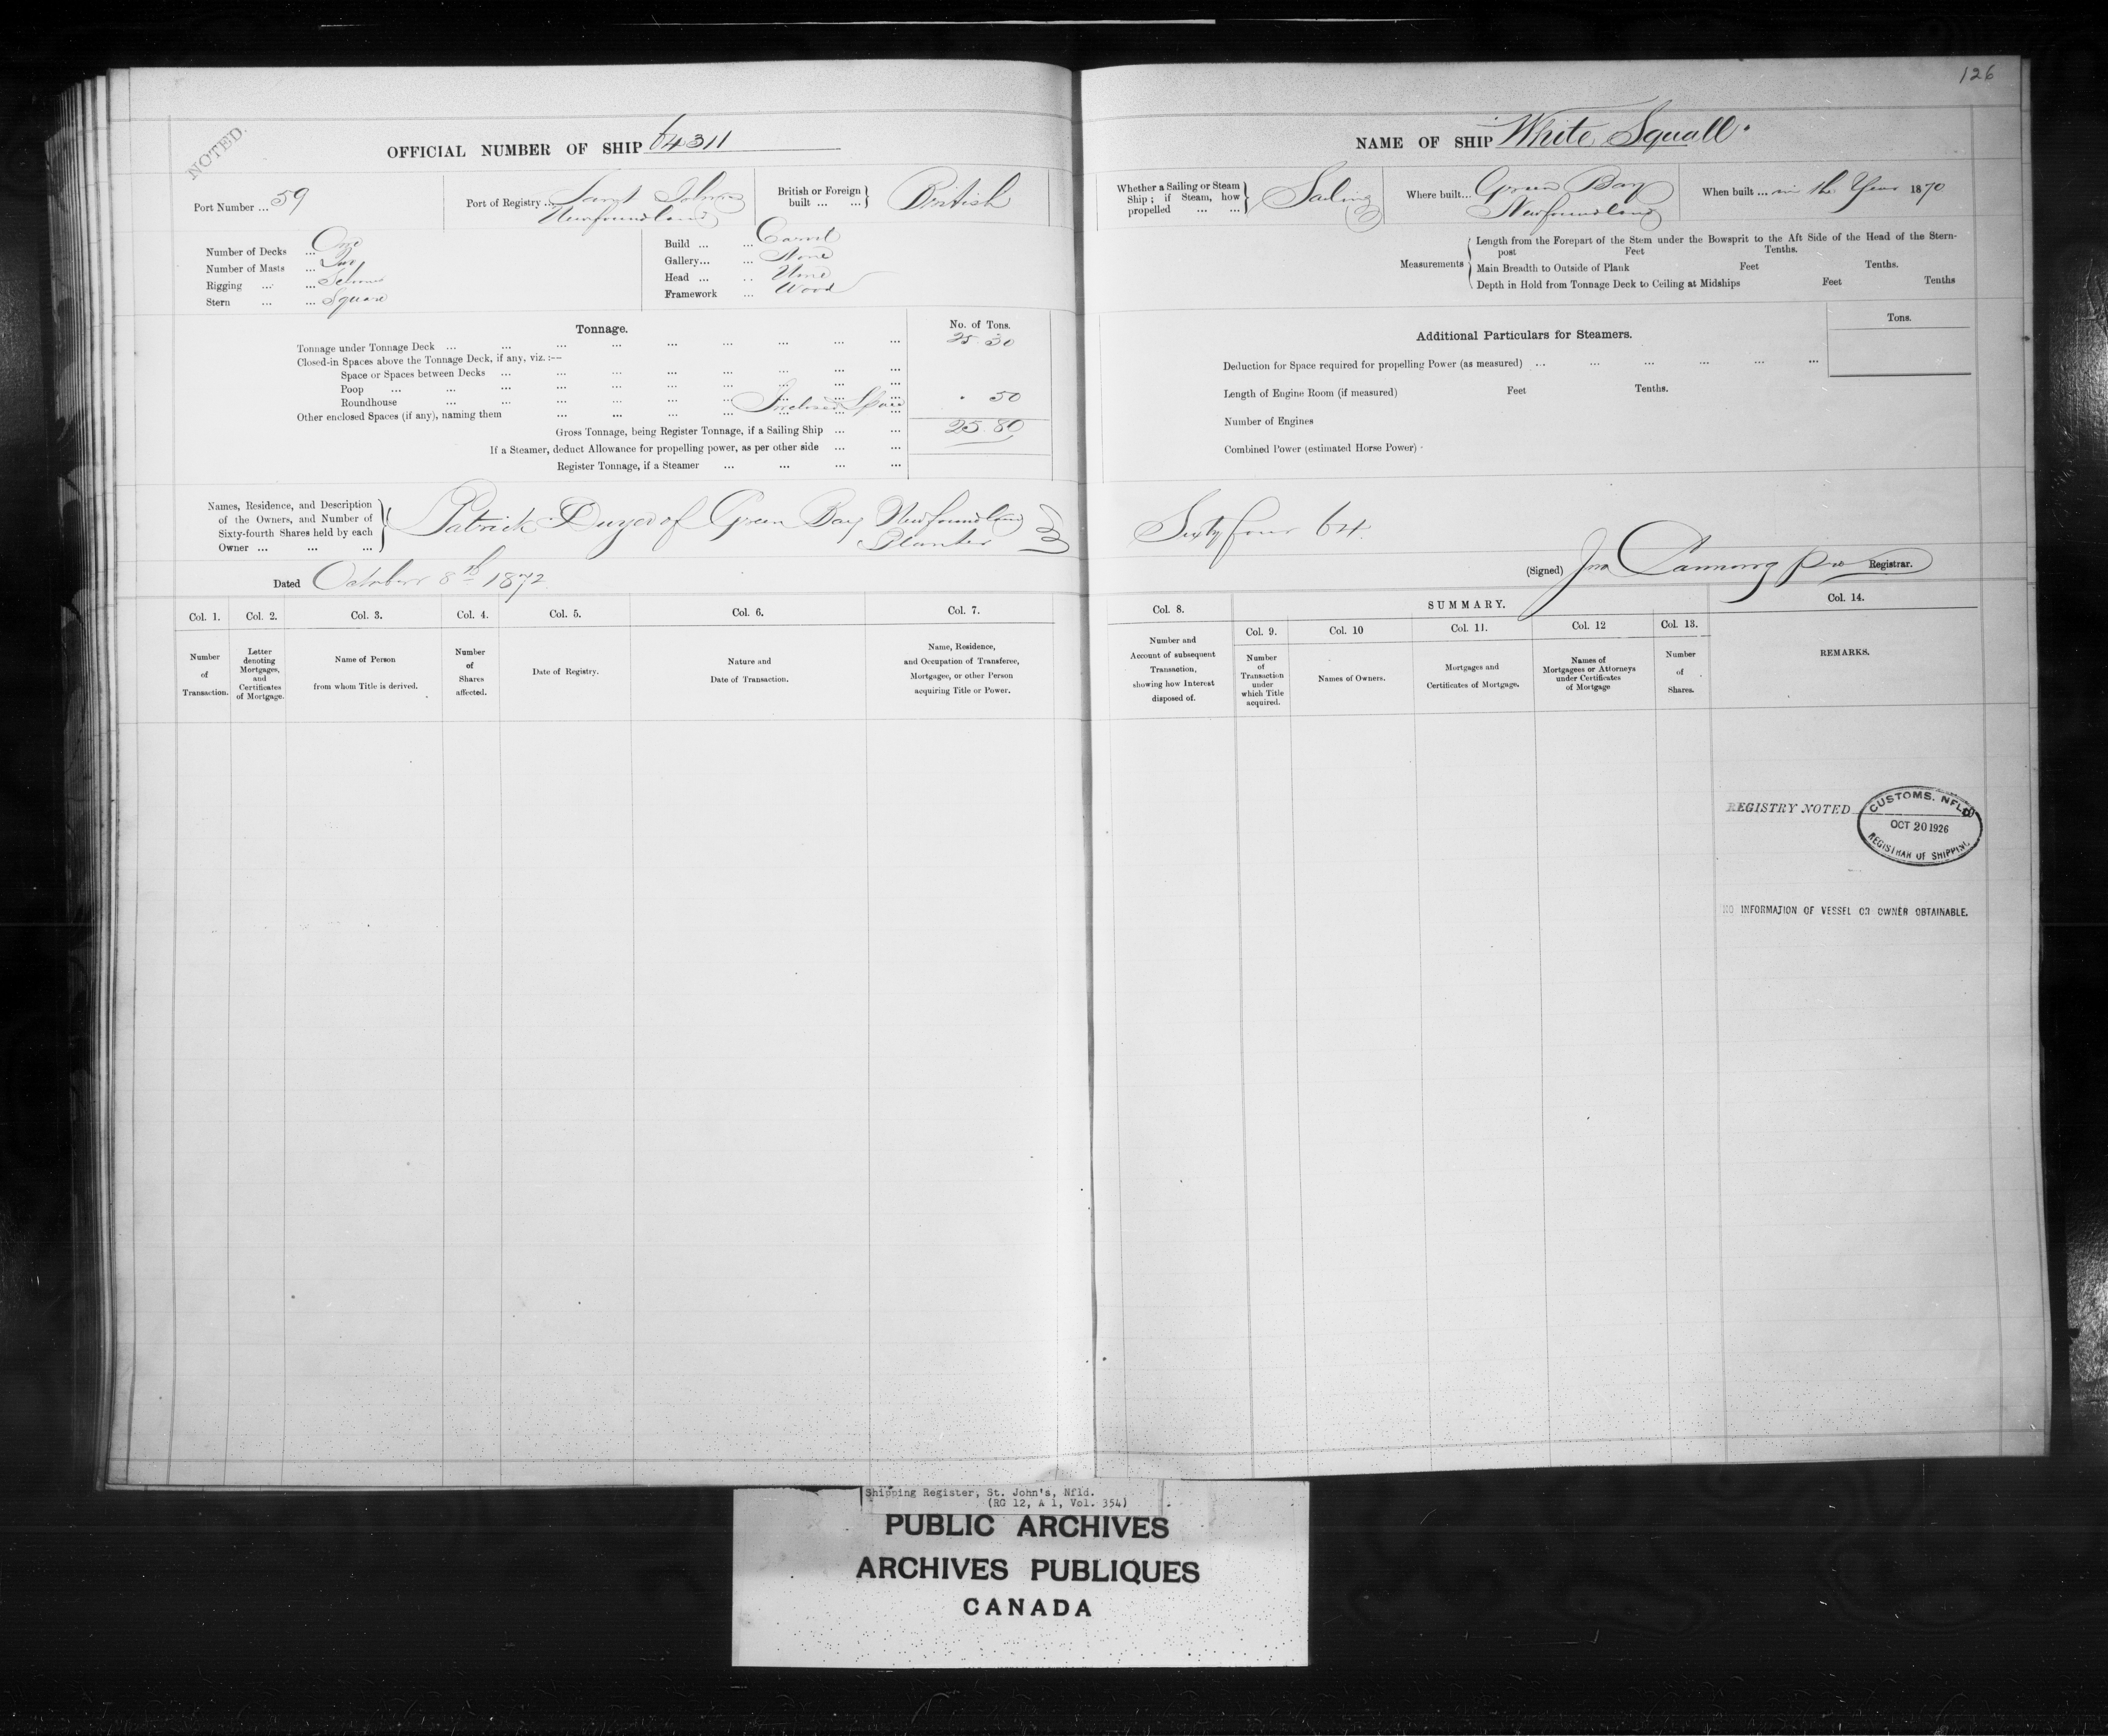 126
NOTED.
OFFICIAL NUMBER OF SHIP 64311
Port Number ... 59
Port of Registry ... Saint Johns
Newfoundland
British or Foreign built ... ... } British
Number of Decks ... One
Number of Masts ... Two
Rigging ... ... Schooner
Stern ... ... Square
Build ... ... Carvel
Gallery... ... None
Head ... .. None
Framework ... Wood
Tonnage.
No. of Tons.
Tonnage under Tonnage Deck ... ... ... ... ... ... ... ... 25 30
Closed-in Spaces above the Tonnage Deck, if any, viz. :—
Space or Spaces between Decks ... ... ... ... ... ... ...
Poop ... ... ... ... ... ... ... ...
Roundhouse ... ... ... ... ... ... ...
Other enclosed Spaces (if any), naming them ... ... ... Inclosed Space . 50
Gross Tonnage, being Register Tonnage, if a Sailing Ship ... ... 25.80
If a Steamer, deduct Allowance for propelling power, as per other side ... ...
Register Tonnage, if a Steamer ... ... ... ...
Names, Residence, and Description
of the Owners, and Number of
Sixty-fourth Shares held by each
Owner ... ... ...
Patrick of Green Bay Newfoundland
Planter
Dated October 8th 1872
Col. 1.
Col. 2.
Col. 3.
Col. 4.
Col. 5.
Col. 6.
Col. 7.
Number
of
Transaction.
Letter
denoting
Mortgages,
and
Certificates
of Mortgage.
Name of Person
from whom Title is derived.
Number
of
Shares
affected.
Date of Registry.
Nature and
Date of Transaction.
Name, Residence,
and Occupation of Transferee,
Mortgagee, or other Person
acquiring Title or Power.
NAME OF SHIP White Squall.
Whether a Sailing or Steam
Ship ; if Steam, how
propelled ... ...
Sailing
Where built... Green Bay
Newfoundland
When built ... in the Year 1870
Measurements
Length from the Forepart of the Stem under the Bowsprit to the Aft Side of the Head of the Stern-
post Feet Tenths.
Main Breadth to Outside of Plank Feet Tenths.
Depth in Hold from Tonnage Deck to Ceiling at Midships Feet Tenths
Additional Particulars for Steamers.
Tons.
Deduction for Space required for propelling Power (as measured) ... ... ... ... ... ...
Length of Engine Room (if measured) Feet Tenths.
Number of Engines
Combined Power (estimated Horse Power) -
Sixty four 64.
(Signed) Jno Canning pro Registrar.
Col. 8.
SUMMARY.
Col. 14.
Col. 9.
Col. 10
Col. 11.
Col. 12
Col. 13.
Number and
Account of subsequent
Transaction,
showing how Interest
disposed of.
Number
of
Transaction
under
which Title
acquired.
Names of Owners.
Mortgages and
Certificates of Mortgage.
Names of
Mortgagees or Attorneys
under Certificates
of Mortgage
Number
of
Shares.
REMARKS.
REGISTRY NOTED
CUSTOMS. NFLD
OCT 20 1926
REGISTRAR OF SHIPPING
NO INFORMATION OF VESSEL OR OWNER OBTAINABLE.
Shipping Register, St. John's, Nfld.
(RG 12, A 1, Vol. 354)
PUBLIC ARCHIVES
ARCHIVES PUBLIQUES
CANADA